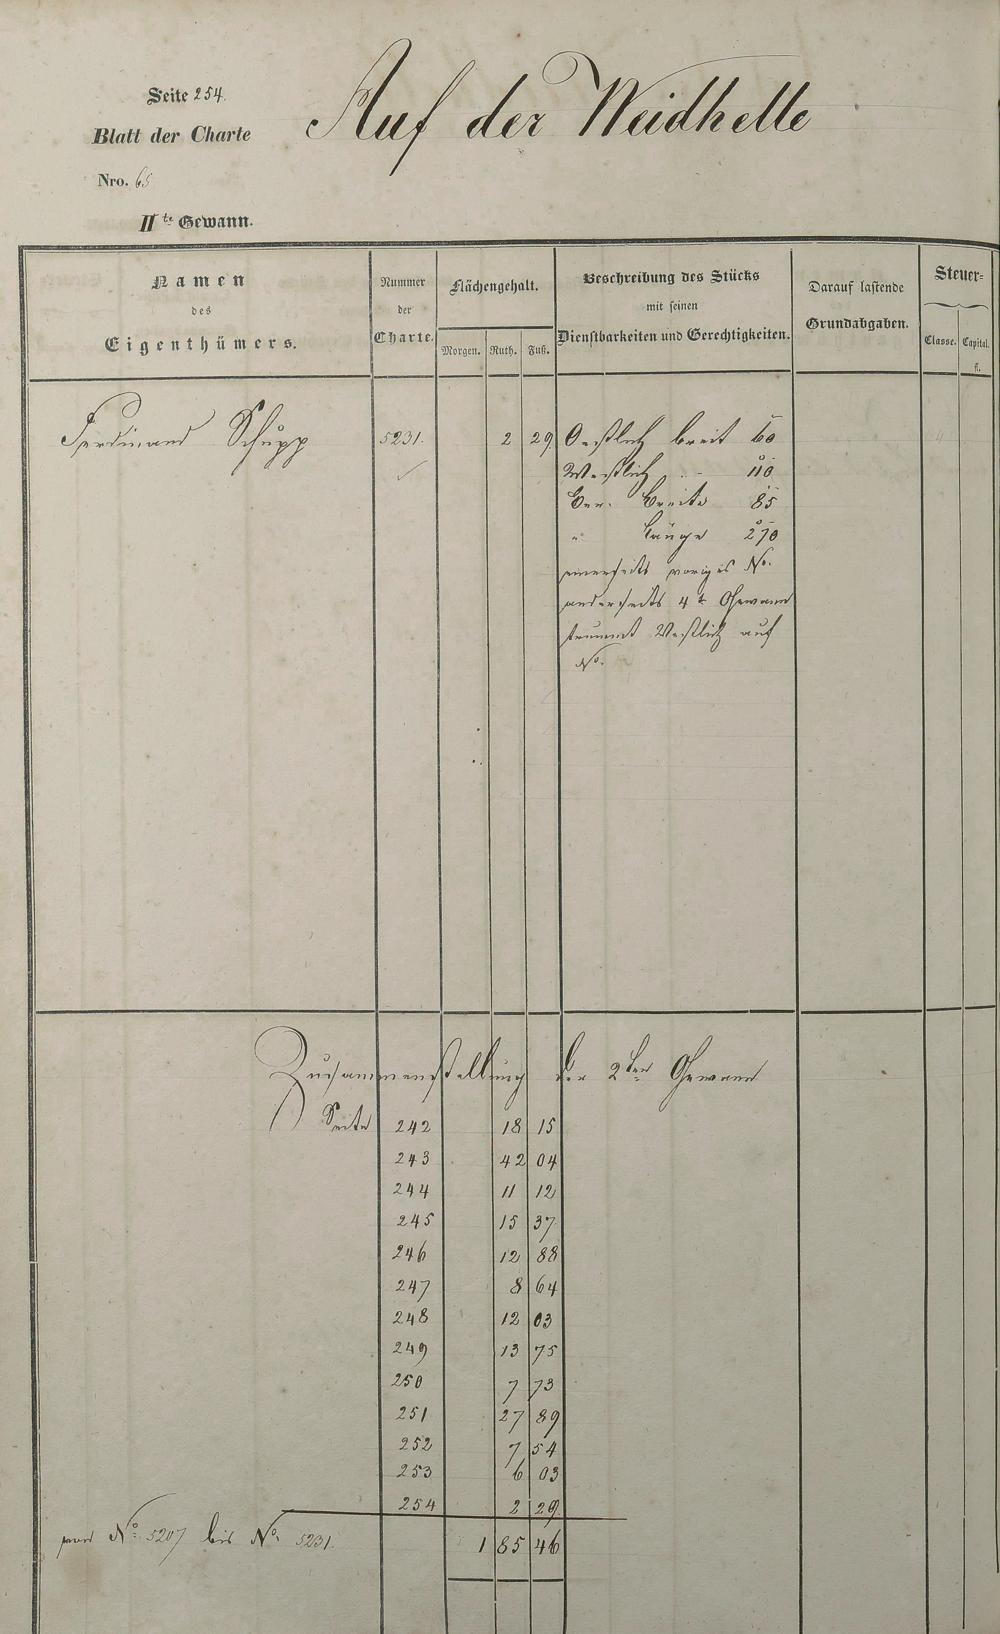 Seite 254.
Auf der Weidhelle
Blatt der Charte
Nro. 65
IIte Gewann.
Namen
des
Eigenthümers.
Nummer
der
Charte.
Flächengehalt.
Morgen. Ruth. Fuß.
Beschreibung des Stücks
mit seinen
Dienstbarkeiten und Gerechtigkeiten.
Darauf lastende
Grundabgaben.
Steuer=
Classe. Capital.
fl.
Ferdinand Schupp 5231. 2 29 Oestlich breit 60
Westlich " 110
Ber. Breite 85
" Länge 270
einerseits voriges No.
anderseits 4te Gewann
Westlich auf
No.
Zusammenstellung der 2ten Gewann
Seite 242 18 15
243 42 04
244 11 12
245 15 37
246 12 88
247 8 64
248 12 03
249 13 75
250 7 73
251 27 89
252 7 54
253 6 03
254 2 29
von No. 5207 bis No. 5231. 1 85 46